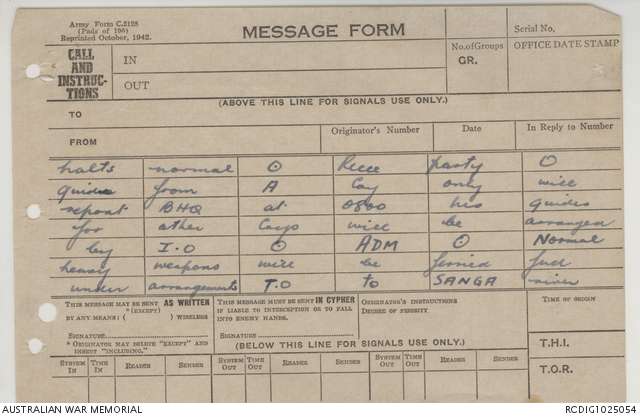 Army Form C.2128
(Pads of 100)
Reprinted October, 1942.
MESSAGE FORM
Serial No.
CALL AND INSTRUCTIONS
IN
OUT
No. of Groups
GR.
OFFICE DATE STAMP
(ABOVE THIS LINE FOR SIGNALS USE ONLY.)
TO
FROM
Originator's Number
Date
In Reply to Number
halts normal O Recce party O
guides from A Coy only will
report BHQ at 0800 hrs guides
for other Coys will be arranged
by I.O O ADM O Normal
heavy weapons will be
under arrangements T.O to SANGA river
THIS MESSAGE MAY BE SENT AS WRITTEN
*(EXCEPT)
BY ANY MEANS ( ) WIRELESS
SIGNATURE
* ORIGINATOR MAY DELETE "EXCEPT" AND
INSERT "INCLUDING."
THIS MESSAGE MUST BE SENT IN CYPHER
IF LIABLE TO INTERCEPTION OR TO FALL
INTO ENEMY HANDS.
SIGNATURE
ORIGINATOR'S INSTRUCTIONS
DEGREE OF PRIORITY
TIME OF ORIGIN
(BELOW THIS LINE FOR SIGNALS USE ONLY.)
T.H.I.
SYSTEM IN TIME IN READER SENDER SYSTEM OUT TIME OUT READER SENDER SYSTEM OUT TIME OUT READER SENDER
T.O.R.
AUSTRALIAN WAR MEMORIAL
RCDIG1025054